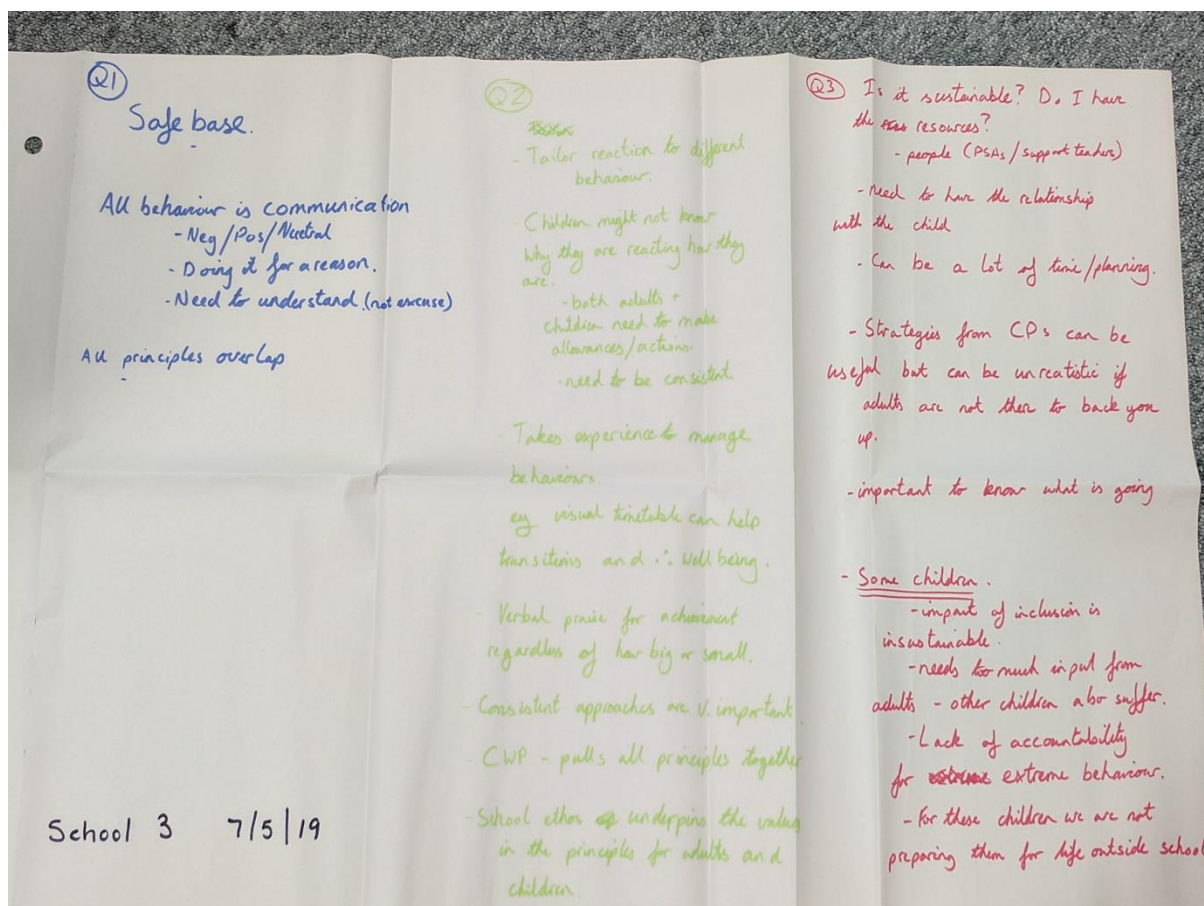 Q1
Safe base.
All behaviour is communication
- Neg/Pos/Nuetral
- Doing it for a reason.
- Need to understand (not excuse)
All principles overlap
School 3 7/5/19
Q2
- Tailor reaction to different
behaviour.
- Children might not know
why they are reacting how they
are.
- both adults +
children need to make
allowances/actions.
- need to be consistent.
- Takes experience to manage
behaviours.
eg visual timetable can help
transitions and ∴ well being.
- Verbal praise for achievement
regardless of how big or small.
- Consistent approaches are v. important
- CWP - pulls all principles together
- School ethos underpins the values
in the principles for adults and
children
Q3 Is it sustainable? Do I have
the resources?
- people (PSAs/support teachers)
- need to have the relationship
with the child
- Can be a lot of time/planning.
- Strategies from CPs can be
useful but can be unrealistic if
adults are not there to back you
up.
- important to know what is going
- Some children.
- impact of inclusion is
insustainable.
- needs too much input from
adults - other children also suffer.
- Lack of accountability
for extreme behaviour.
- For these children we are not
preparing them for life outside school